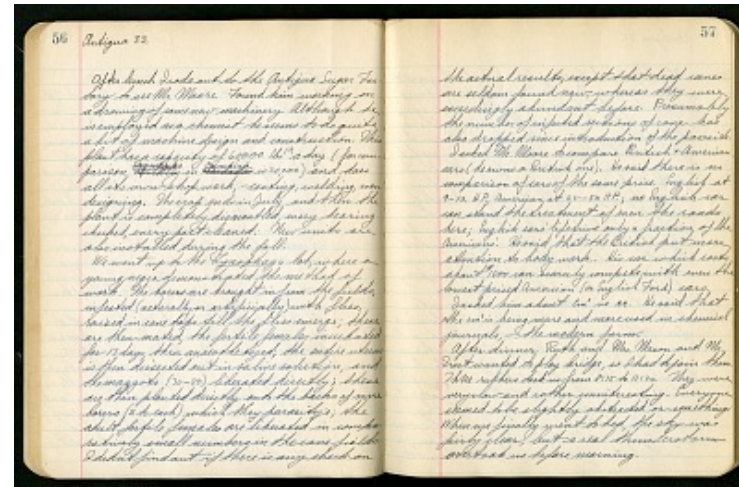 56
Antigua 32.
After lunch I rode out to the Antigua Sugar Fac-
tory to see Mr. Moore. Found him working on
a drawing of some new machinery. Although he
is employed as a chemist he seems to do quite
a bit of machine design and construction. This
plant has a capacity of 60,000 lbs a day (
in and does
all its own shop work, casting, welding, even
designing. The crop ends in July, and then the
plant is completely dismantled, every bearing
checked, every part cleaned. New units are
also installed during the fall.
We went up to the lab, where a
young negro demonstrated the method of
work. The borers are brought in from the fields,
infested (naturally or artificially) with flies,
in cane tops till the flies emerge; these
are then mated, the fertile females incubated
for days, then anaesthetized, the entire uterus
is then dissected out in saline solution, and
the maggots liberated directly; these
are then planted directly on the backs of more
borers (2 to each) which they parasitize; the
adult fertile females are liberated in compa-
ratively small numbers in the cane fields.
I didn't find out if there is any check on
57
the actual results, except that dead canes
are seldom found now, whereas they were
exceedingly abundant before. Presumably
the number of injured sections of cane has
also dropped since introduction of the parasite.
I asked Mr. Moore to compare British & American
cars (he owns a British one). He said there is no
comparison of cars of the same price. English at
9-12 H.P., American at H.P.; no English car
can stand the treatment of men the roads
here; English cars' lifetime only a fraction of the
American. He said, that the British put more
attention to body work. His car which cost
about can scarcely compete with even the
lowest priced American (or English Ford) cars.
I asked him about He said that
the is being more and more used in chemical
journals, & the modern form.
After dinner, Ruth and Mrs. and Mr.
wanted to play bridge, so I had to join them.
rubbers lasted us from 8:15 to They were
very slow and rather uninteresting. Everyone
seemed to be slightly antiquated or something.
When we finally went to bed, the sky was
fairly clear, but a real thunderstorm
overtook us before morning.